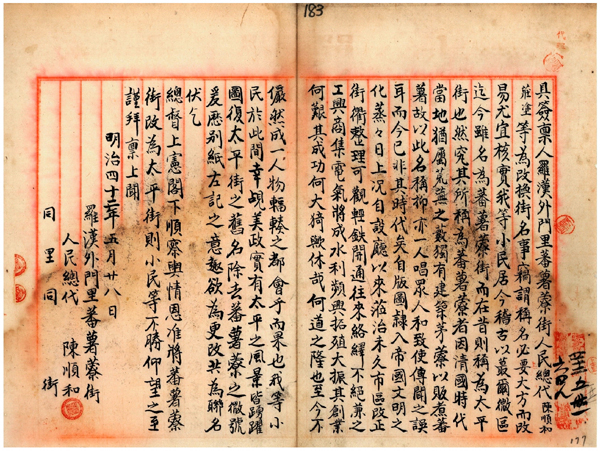 183
具簽稟人羅漢外門里蕃薯藔街人民總代陳順和
等為改換街名事竊謂稱名必要大方而改
易尤宜核實我等小民居今稽古以蕞爾微區
迄今雖名為蕃薯藔街而在昔則稱為太平
街也然究其所稱為蕃薯藔者因清國時代
當地猶屬荒蕪之藪獨有建築茅藔以販煮蕃
薯故以此名稱抑亦一人唱眾人和致使傳聞之誤
耳而今已非其時代矣自版圖隸入帝國文明之
化蒸々日上況自設廳以來蒞治未久市區改正
街衢整理可觀輕鉄開通往來絡繹不絕兼之
工興商集電氣將成水利頻興拓殖大振其創業
何艱其成功何大猗歟休哉何道之隆也至今不
儼然成一人物輻輳之都會乎而果也我等小
民於此間幸覩美政實有太平之風景皆踴躍
圖復太平街之舊名除去蕃薯藔之微號
爰瀝別紙左記之意思欲為更改共為聯名
伏乞
總督上憲閣下順察輿情恩准將蕃薯藔
街改為太平街則小民等不勝仰望之至
謹拜稟上聞
明治四十二年五月廿八日
羅漢外門里蕃薯藔街
人民總代 陳順和
同里同 街
177